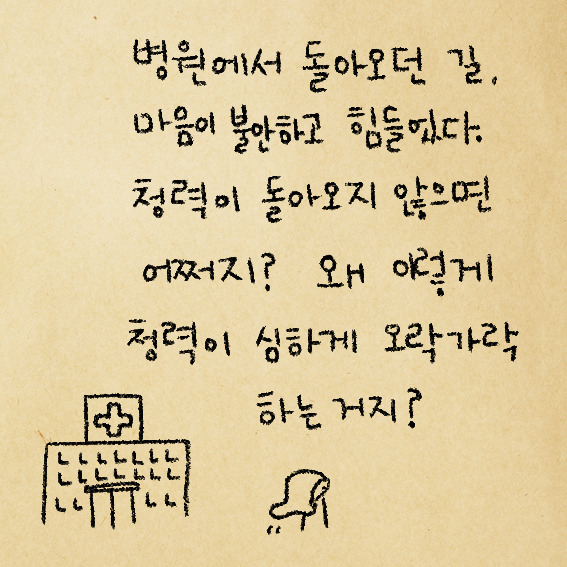 병원에서 돌아오던 길,
마음이 불안하고 힘들었다.
청력이 돌아오지 않으면
어쩌지? 왜 이렇게
청력이 심하게 오락가락
하는 거지?